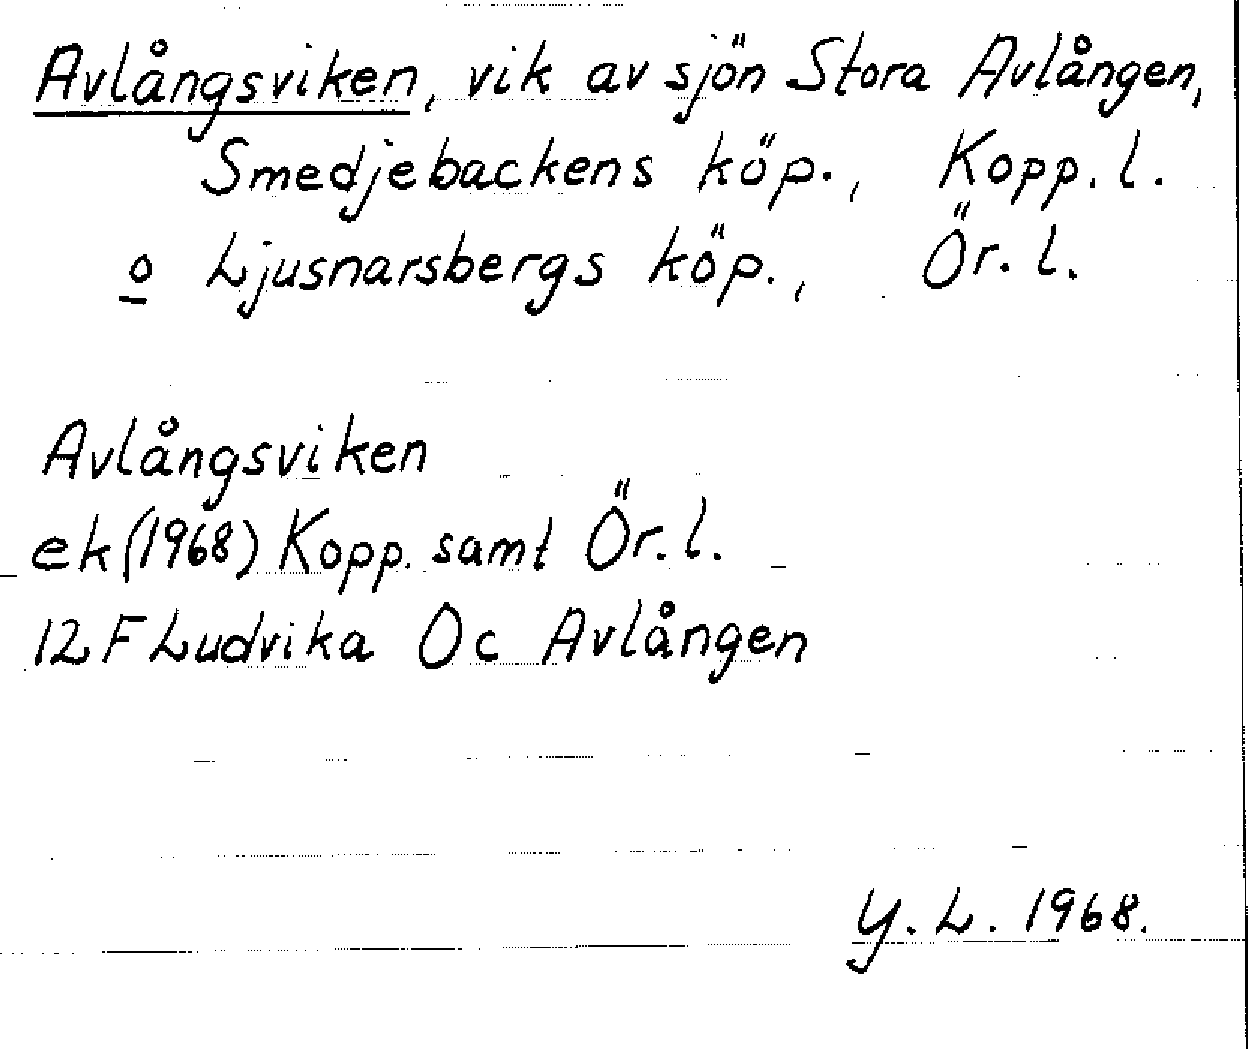 Avlångsviken, vik av sjön Stora Avlången,
Smedjebackens köp., Kopp. l.
o Ljusnarsbergs köp., Ör. l.
Avlångsviken
ek (1968) Kopp. samt Ör. l.
12 F Ludvika Oc Avlången
Y. L. 1968.